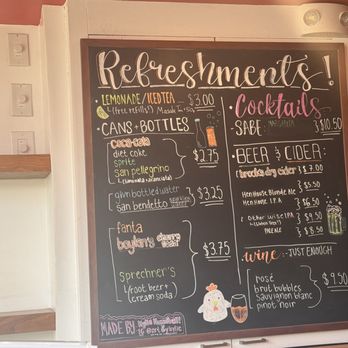 Refreshments!
LEMONADE/ICED TEA } $3.00
(free refills!)
CANS + BOTTLES
coca-cola
diet coke
sprite
san pellegrino
$2.75
glvn bottled water
san benedetto
$3.25
fanta
boylan's
$3.75
sprechrer's
root beer +
cream soda
MADE BY
Cocktails
SABE: MARGARITA } $10.50
BEER & CIDER:
(brooks dry cider) } $7.00
Hen House Blonde Ale } $5.50
Hen House I.P.A } $6.50
Other wise IPA } $9.50
PALE ALE } $8.50
wine: JUST ENOUGH
rosé
brut bubbles
sauvignon blanc
pinot noir
$9.50